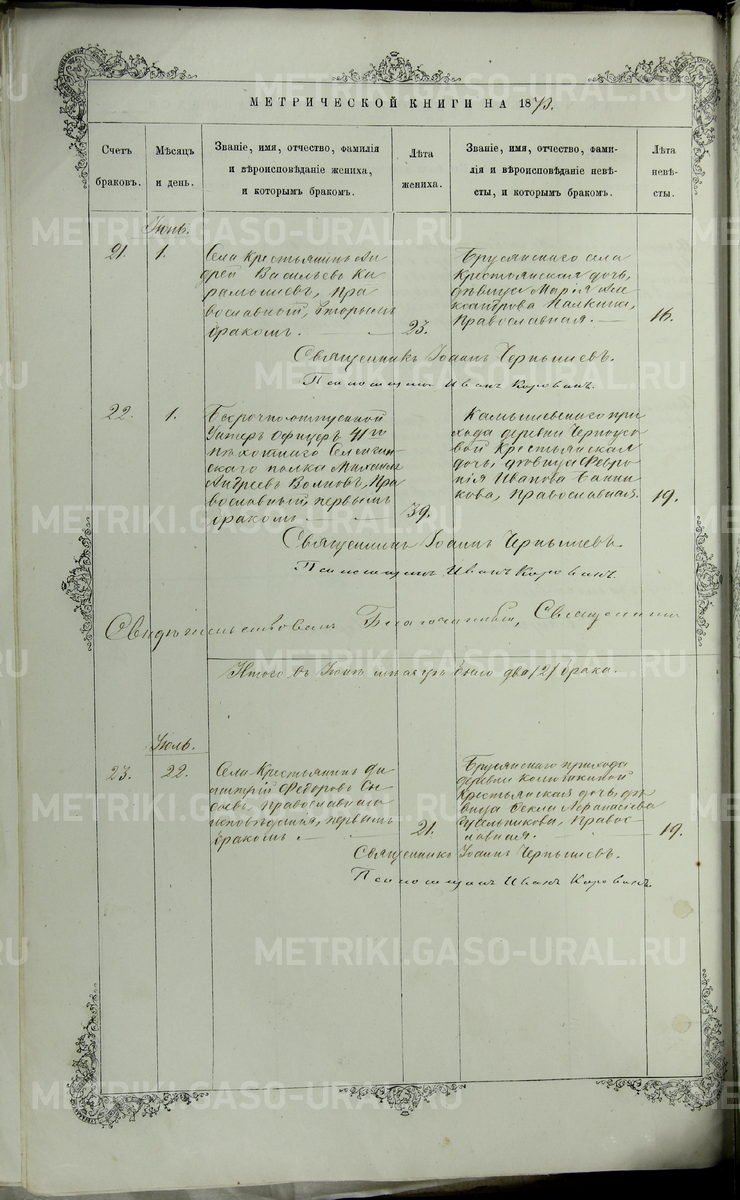 МЕТРИЧЕСКОЙ КНИГИ НА 1873.
Счетъ
браковъ.
Мѣсяцъ
и день.
Званіе, имя, отчество, фамилія
и вѣроисповѣданіе жениха,
и которымъ бракомъ.
Лѣта
жениха.
Званіе, имя, отчество, фами-
лія и вѣроисповѣданіе невѣ-
сты, и которымъ бракомъ.
Лѣта
невѣ-
сты.
Іюнь.
21. 1.
Села Крестьянинъ Ан
дрей Васильевъ Ка
рамышевъ, Пра
вославный, вторымъ
бракомъ. 23.
Брусянскаго села
Крестьянская дочь,
дѣвица Марія Але
ксандрова Палкина,
Православная. 16.
Священникъ Іоаннъ Чернышевъ.
Псаломщикъ Иванъ Коровинъ.
22. 1.
Безсрочноотпускной
Унтеръ Офицеръ 41го
пѣхотнаго Селенгин
скаго полка Михаилъ
Андреевъ Волковъ, Пра
вославный, первымъ
бракомъ 39.
Камышевскаго при
хода деревни Черноусо
вой Крестьянская
дочь, дѣвица Февро
нія Иванова Банни
кова, Православная. 19.
Священникъ Іоаннъ Чернышевъ.
Псаломщикъ Иванъ Коровинъ.
Свидѣтельствовалъ Благочинный, Священникъ
Итого въ Іюнѣ мѣсяцѣ было два /2/ брака.
Іюль.
23. 22.
Села Крестьянинъ Ди
митрій Ѳеодоровъ
православнаго
исповѣданія, первымъ
бракомъ 21.
Брусянскаго прихода
деревни
Крестьянская дочь, дѣ
вица Ѳекла Аѳанасіева
Правос-
лавная. 19.
Священникъ Іоаннъ Чернышевъ.
Псаломщикъ Иванъ Коровинъ.
METRIKI.GASO-URAL.RU